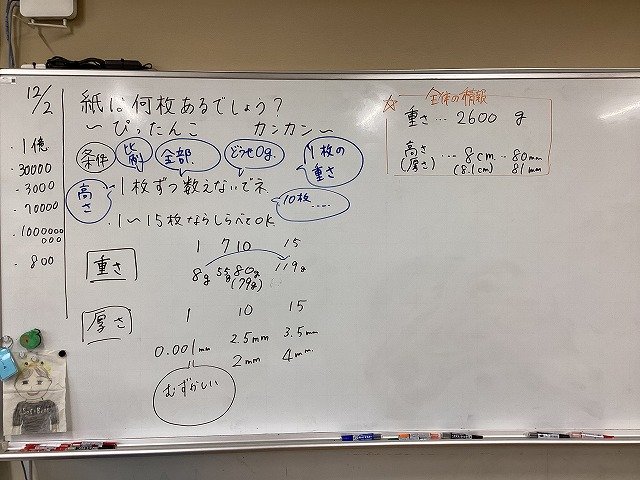 12/2
・1億
・30000
・3000
・70000
・1000000
000
・800
紙は何枚あるでしょう?
～ぴったんこ カンカン～
条件
比例
全部
どうせ0g.
1枚の
重さ
高さ
・1枚ずつ数えないでネ.
10枚....
・1〜15枚ならしらべてOK.
1 7 10 15
重さ
8g 55g 80g 119g
(79g)
厚さ
1 10 15
0.001mm 2.5mm 3.5mm
2mm 4mm
むずかしい
☆ 全体の情報
重さ… 2600 g
高さ
(厚さ) … 8cm … 80mm
(8.1cm) 81mm